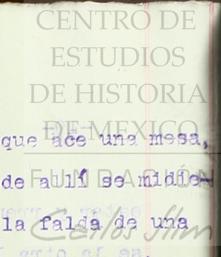 CENTRO DE
ESTUDIOS
DE HISTORIA
DE MEXICO
que ace una mesa,
de allí se midie-
FUNDACIÓN
la falda de una
Carlos Slim